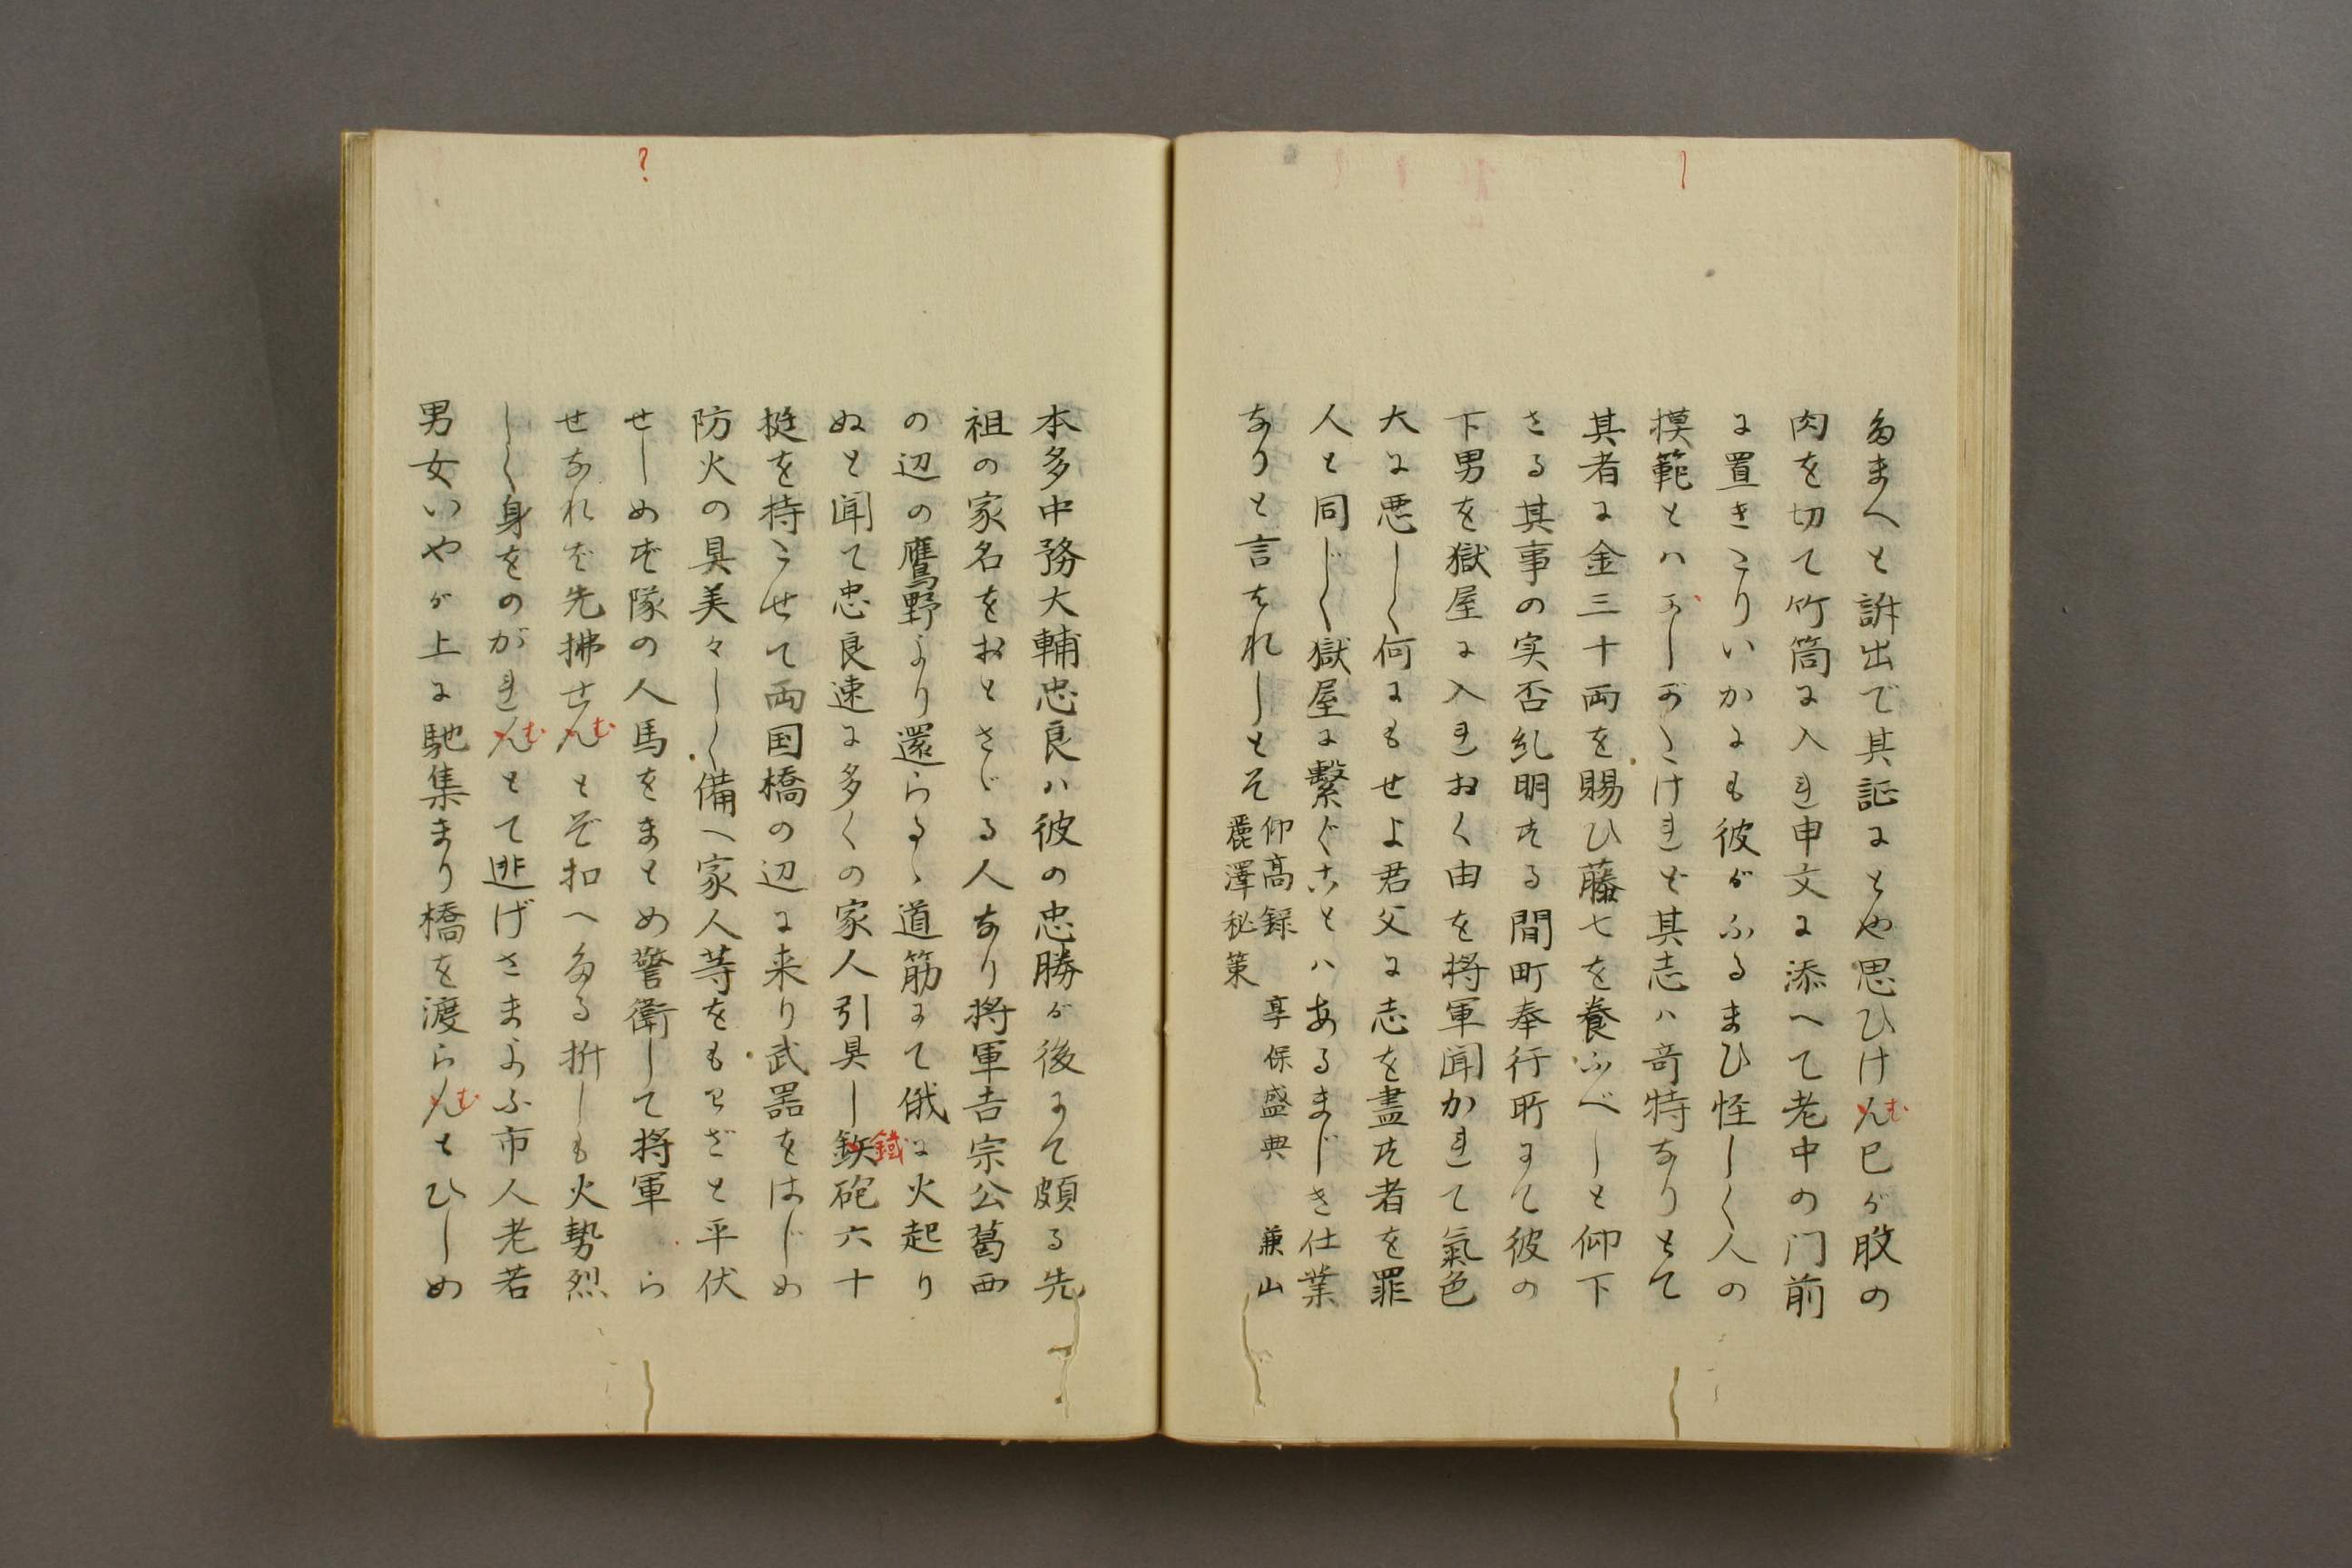 たまへと訴出で其証にとや思ひけん巳が股の
む
肉を切て竹筒に入れ申文に添へて老中の门前
に置きこりいかにも彼がふるまひ怪しく人の
摸範とハなしがたけれど其志ハ奇特なりとて
其者に金三十両を賜ひ藤七を養ふべしと仰下
さる其事の実否糺明する間町奉行所にて彼の
下男を獄屋に入れおく由を将軍聞かれて氣色
大に悪しく何にもせよ君父に志を盡す者を罪
人と同じく獄屋に繋ぐことハあるまじき仕業
なりと言はれしとそ
仰高録 享保盛典 兼山
麗澤秘策
本多中務大輔忠良ハ彼の忠勝が後にて頗る先
祖の家名をおとさゞる人なり将軍吉宗公葛西
の辺の鷹野より還らるゝ道筋にて俄に火起り
ぬと聞て忠良速に多くの家人引具し鉄砲六十
鐵
挺を持こせて両国橋の辺に来り武器をはじめ
防火の具美々しく備へ家人等をもわざと平伏
せしめず隊の人馬をまとめ警衛して将軍 ら
せなれを先拂せんとぞ扣へたる折しも火勢烈
む
しく身をのがれんとて逃げさまよふ市人老若
む
男女いやが上に馳集まり橋を渡らんとひしめ
む
?